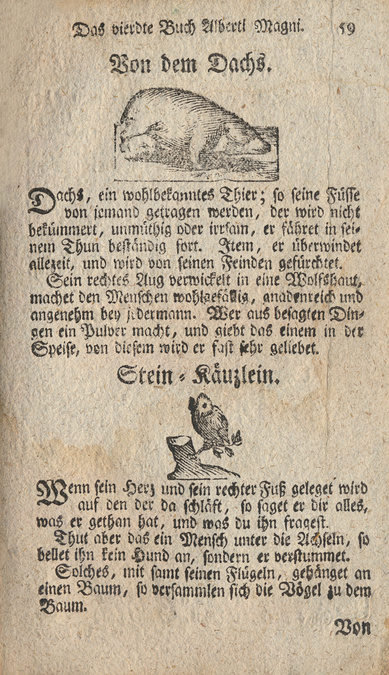 Das vierdte Buch Alberti Magni. 59
Von dem Dachs.
Dachs, ein wohlbekanntes Thier; so seine Füsse
von jemand getragen werden, der wird nicht
bekümmert, unmüthig oder irrsam, er fähret in sei-
nem Thun beständig fort. Item, er überwindet
allezeit, und wird von seinen Feinden gefürchtet.
Sein rechtes Aug verwickelt in eine Wolfshaut,
machet den Menschen wohlgefällig, gnadenreich und
angenehm bey jedermann. Wer aus besagten Din-
gen ein Pulver macht, und giebt das einem in der
Speise, von diesem wird er fast sehr geliebet.
Stein-Käuzlein.
Wenn sein Herz und sein rechter Fuß geleget wird
auf den der da schläft, so saget er dir alles,
was er gethan hat, und was du ihn fragest.
Thut aber das ein Mensch unter die Achseln, so
bellet ihn kein Hund an, sondern er verstummet.
Solches, mit samt seinen Flügeln, gehänget an
einen Baum, so versammlen sich die Vögel zu dem
Baum.
Von